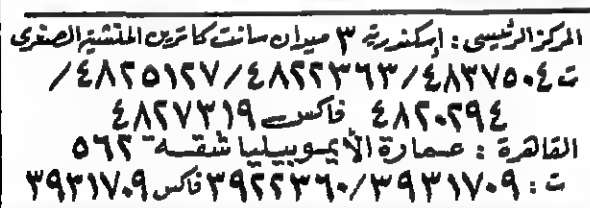 المركز الرئيسى : إسكندرية ٣ ميدان سانت كاترين المنشية الصغرى
ت ٤٨٣٧٥٠٤/٤٨٢٢٣٦٣/٤٨٢٥١٢٧/
٤٨٢٠٢٩٤ فاكس ٤٨٢٧٣١٩
القاهرة : عمارة الأيموبيليا شقة ٥٦٢
ت : ٣٩٣١٧٠٩/٣٩٢٢٣٦٠ فاكس ٣٩٣١٧٠٩